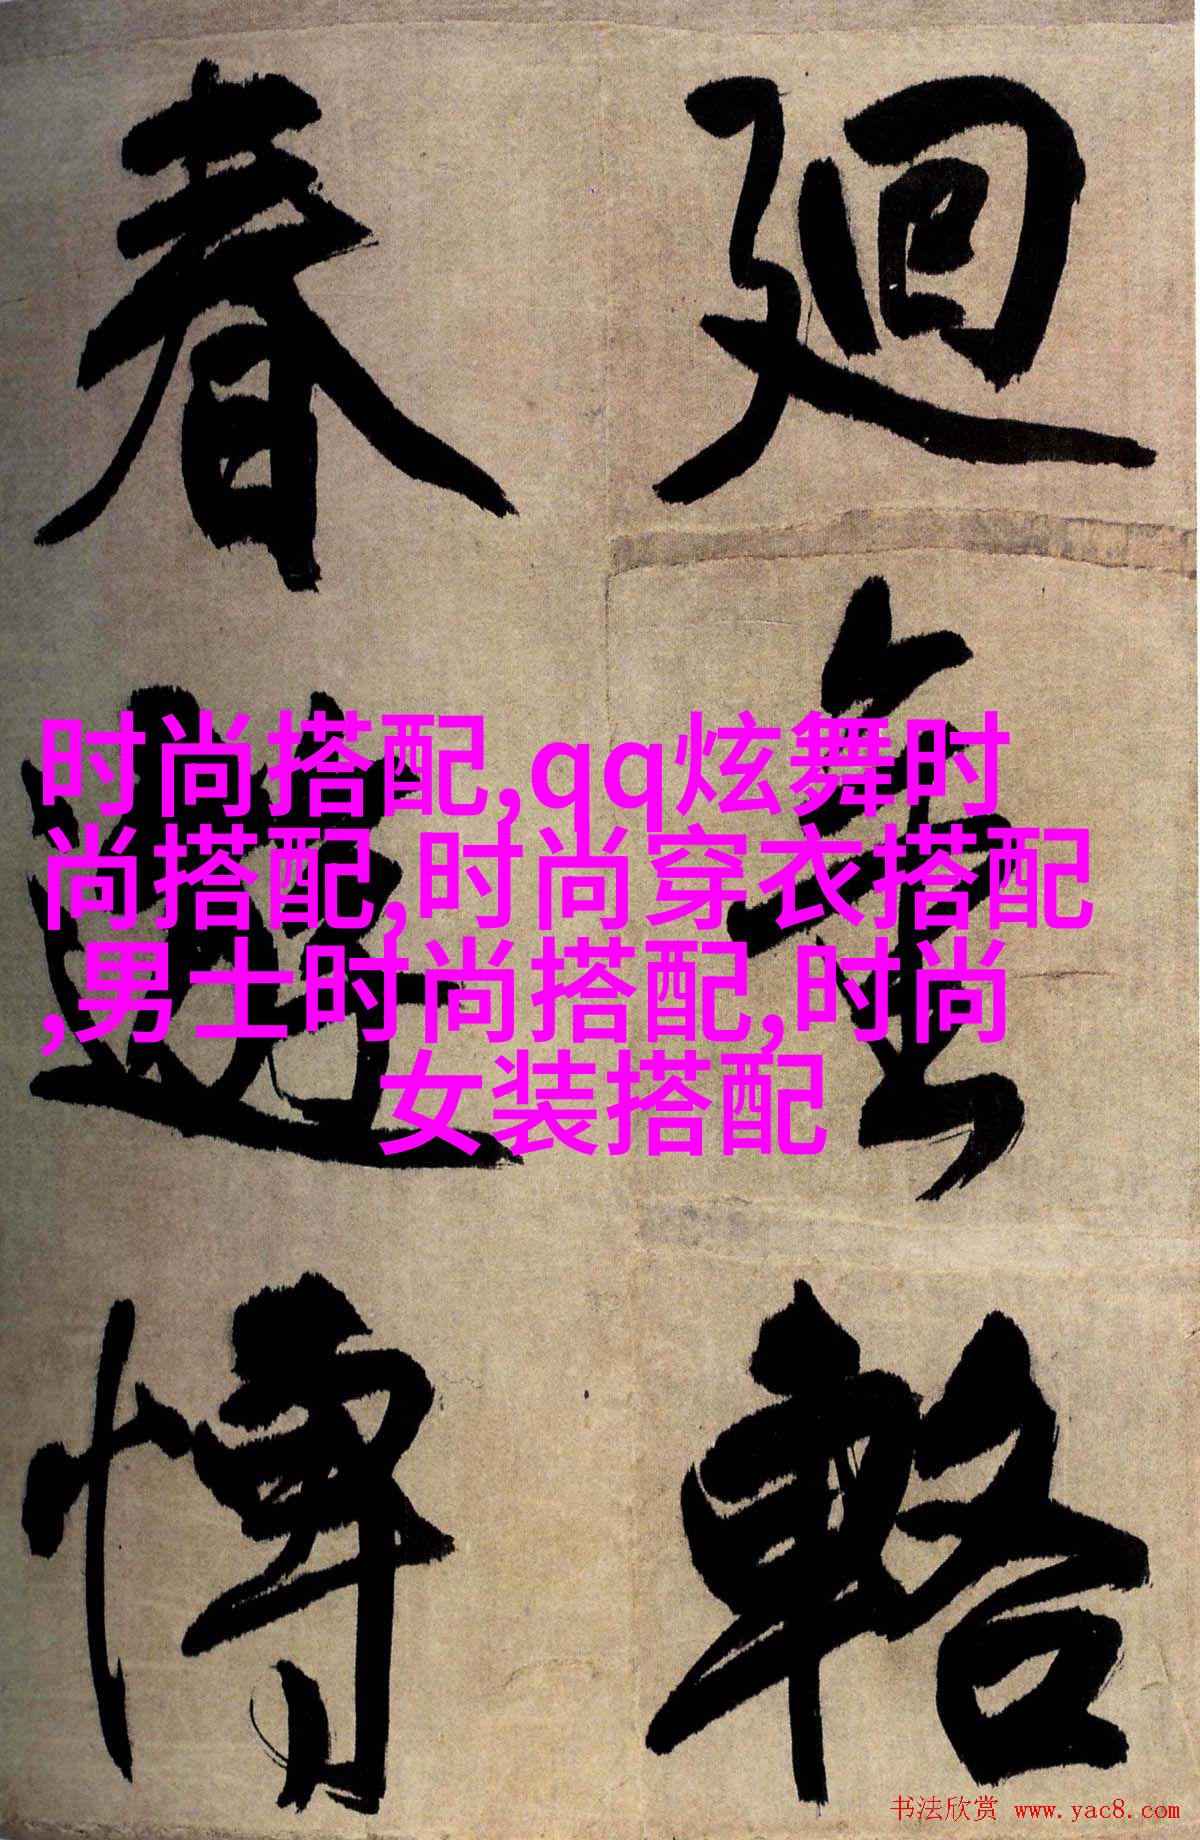 廻金輅
春遊博
时尚搭配,qq炫舞时
尚搭配,时尚穿衣搭配
,男士时尚搭配,时尚
女装搭配
书法欣赏 www.yac8.com